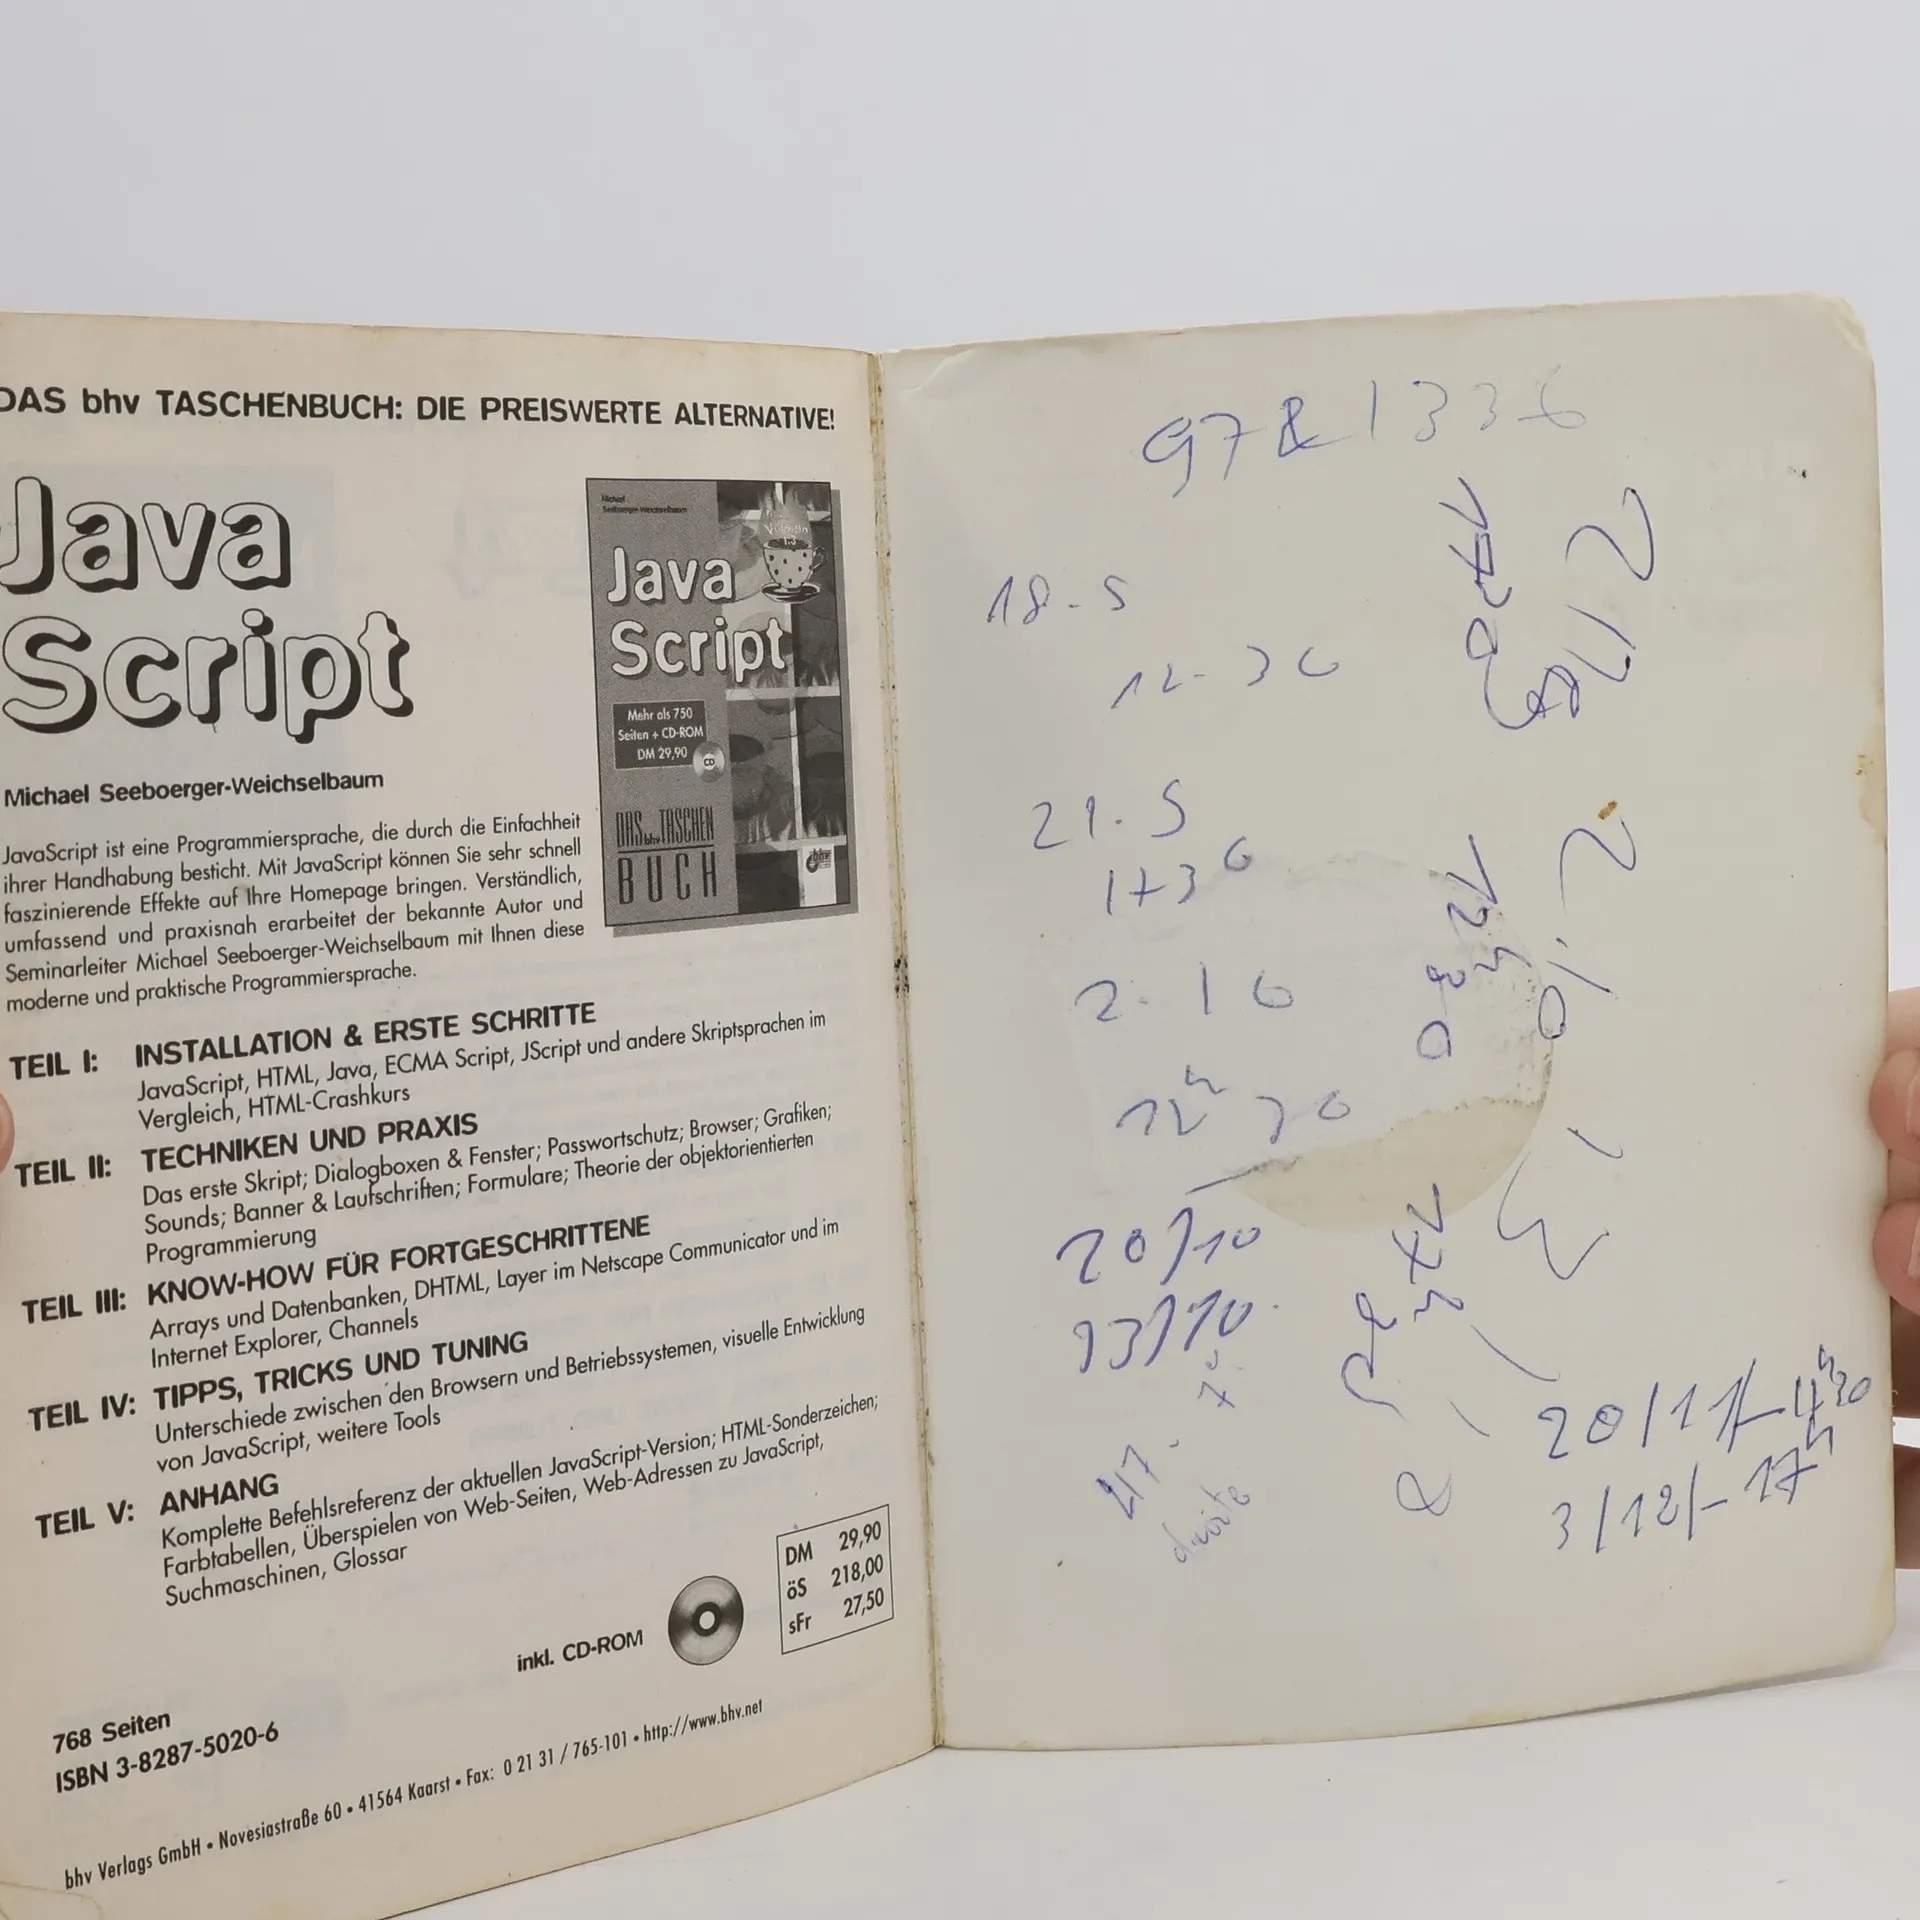 DAS bhv TASCHENBUCH: DIE PREISWERTE ALTERNATIVE!
Java
Script
Michael
Seeboerger-Weichselbaum
Java
Script
Mehr als 750
Seiten + CD-ROM
DM 29,90
CD
DAS bhv TASCHEN
BUCH
bhv
Michael Seeboerger-Weichselbaum
JavaScript ist eine Programmiersprache, die durch die Einfachheit
ihrer Handhabung besticht. Mit JavaScript können Sie sehr schnell
faszinierende Effekte auf Ihre Homepage bringen. Verständlich,
umfassend und praxisnah erarbeitet der bekannte Autor und
Seminarleiter Michael Seeboerger-Weichselbaum mit Ihnen diese
moderne und praktische Programmiersprache.
TEIL I: INSTALLATION & ERSTE SCHRITTE
JavaScript, HTML, Java, ECMA Script, JScript und andere Skriptsprachen im
Vergleich, HTML-Crashkurs
TEIL II: TECHNIKEN UND PRAXIS
Das erste Skript; Dialogboxen & Fenster; Passwortschutz; Browser; Grafiken;
Sounds; Banner & Laufschriften; Formulare; Theorie der objektorientierten
Programmierung
TEIL III: KNOW-HOW FÜR FORTGESCHRITTENE
Arrays und Datenbanken, DHTML, Layer im Netscape Communicator und im
Internet Explorer, Channels
TEIL IV: TIPPS, TRICKS UND TUNING
Unterschiede zwischen den Browsern und Betriebssystemen, visuelle Entwicklung
von JavaScript, weitere Tools
TEIL V: ANHANG
Komplette Befehlsreferenz der aktuellen JavaScript-Version; HTML-Sonderzeichen;
Farbtabellen, Überspielen von Web-Seiten, Web-Adressen zu JavaScript,
Suchmaschinen, Glossar
inkl. CD-ROM
DM 29,90
öS 218,00
sFr 27,50
768 Seiten
ISBN 3-8287-5020-6
bhv Verlags GmbH • Novesiastraße 60 • 41564 Kaarst • Fax: 0 21 31 / 765-101 • http://www.bhv.net
18-5
12-30
21.5
2.10
12h30
20/10
13/10.
20/11
3/12/-17h